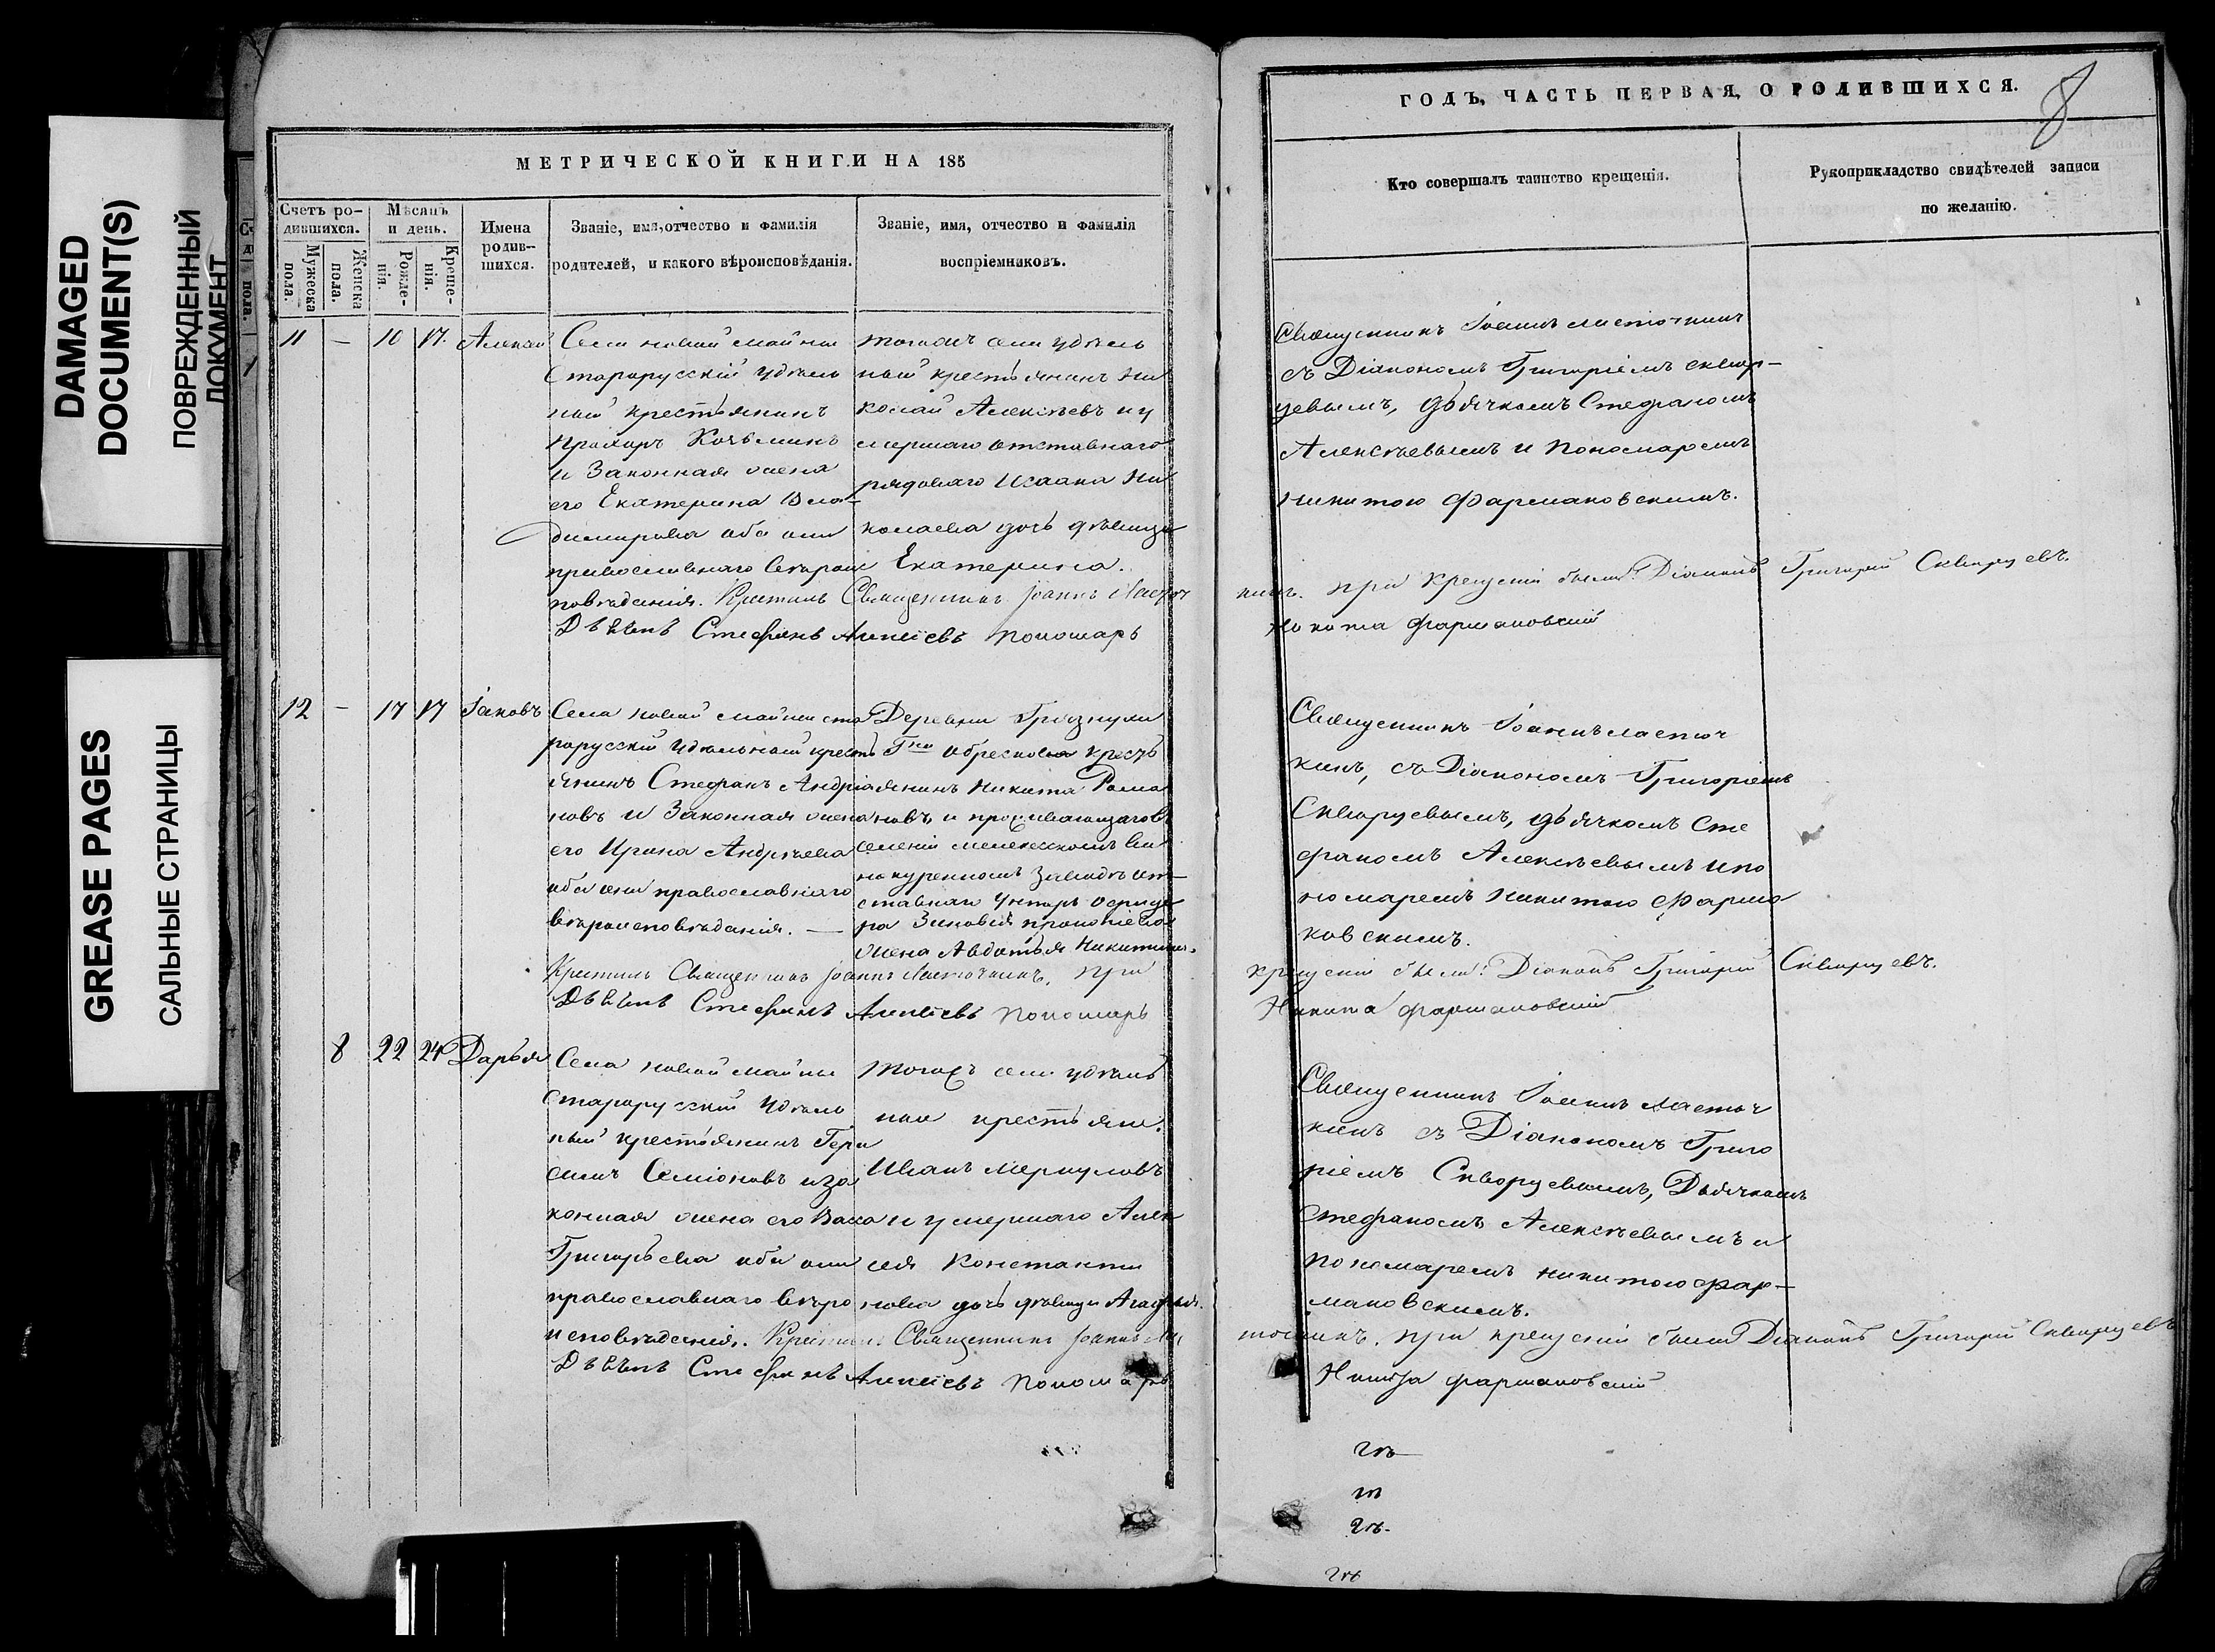 DAMAGED
DOCUMENT(S)
ПОВРЕЖДЕННЫЙ
ДОКУМЕНТ
GREASE PAGES
САЛЬНЫЕ СТРАНИЦЫ
МЕТРИЧЕСКОЙ КНИГИ НА 185
Счетъ ро-
дившихся.
Мужеска
пола.
Женска
пола.
Мѣсяцъ
и день.
Рожде-
нія.
Креще-
нія.
Имена
родив-
шихся.
Званіе, имя, отчество и фамилія
родителей, и какого вѣроисповѣданія.
Званіе, имя, отчество и фамилія
воспріемниковъ.
11 — 10 17. Алексей
Села новой майны
Старорусскій удѣль
ный крестьянинъ
Прохоръ Козьминъ
и Законная жена
его Екатерина Вла-
димирова оба они
православнаго вѣроис
повѣданія. Крестилъ Священникъ Іоаннъ Ласточ
Дьячекъ Стефанъ Алексѣевъ пономарь
тогожъ села удѣль
ный крестьянинъ Ни
колай Алексѣевъ и у
мершаго отставнаго
рядоваго Исаака Ни
колаева дочь дѣвица
Екатерина.
12 — 17 17 Іаковъ
Села новой майны ста
рорусскій удѣльный кресть
янинъ Стефанъ Андріа
новъ и Законная жена
его Ирина Андреева
оба они православнаго
вѣроисповѣданія. —
Крестилъ Священникъ Іоаннъ Ласточкинъ, при
Дьячекъ Стефанъ Алексѣевъ пономарь
Деревни Грязнухи
Гна Обрескова кресть
янинъ Никита Рома
новъ и проживающаго в
селеніи мелекесскомъ ви
нокуренномъ заводѣ от
ставнаго Унтеръ офице
ра Зиновія прокопіева
жена Авдотья Никитина.
8 22 24 Дарья
Села новой майны
Старорусскій удѣль
ный крестьянинъ Гера
симъ Семіоновъ и за
конная жена его Васса
Григорьева оба они
православнаго вѣро
исповѣданія. Крестилъ Священникъ Іоаннъ Лас
Дьячекъ Стефанъ Алексѣевъ пономарь
тогожъ села удѣль
ные крестьяне:
Иванъ Меркуловъ
и умершаго Алек
сея Константи
нова дочь дѣвица Агафья.
ГОДЪ, ЧАСТЬ ПЕРВАЯ, О РОДИВШИХСЯ.
8
Кто совершалъ таинство крещенія.
Рукоприкладство свидѣтелей записи
по желанію.
Священникъ Іоаннъ Ласточкинъ
съ Діакономъ Григоріемъ Сквор-
цевымъ, дьячкомъ Стефаномъ
Алексѣевымъ и Пономаремъ
Никитою Фармаковскимъ.
кинъ. при крещеніи были: Діаконъ Григорій Скворцевъ.
Никита Фармаковскій
Священникъ Іоаннъ Ласточ
кинъ, съ Діакономъ Григоріемъ
Скворцевымъ, дьячкомъ Сте
фаномъ Алексѣевымъ и по
номаремъ Никитою Фарма
ковскимъ.
крещеніи были: Діаконъ Григорій Скворцевъ.
Никита Фармаковскій
Священникъ Іоаннъ Ласточ
кинъ съ Діакономъ Григо
ріемъ Скворцевымъ, Дьячкомъ
Стефаномъ Алексѣевымъ и
Пономаремъ Никитою Фар-
маковскимъ.
точкинъ. при крещеніи были Діаконъ Григорій Скворцевъ
Никита Фармаковскій